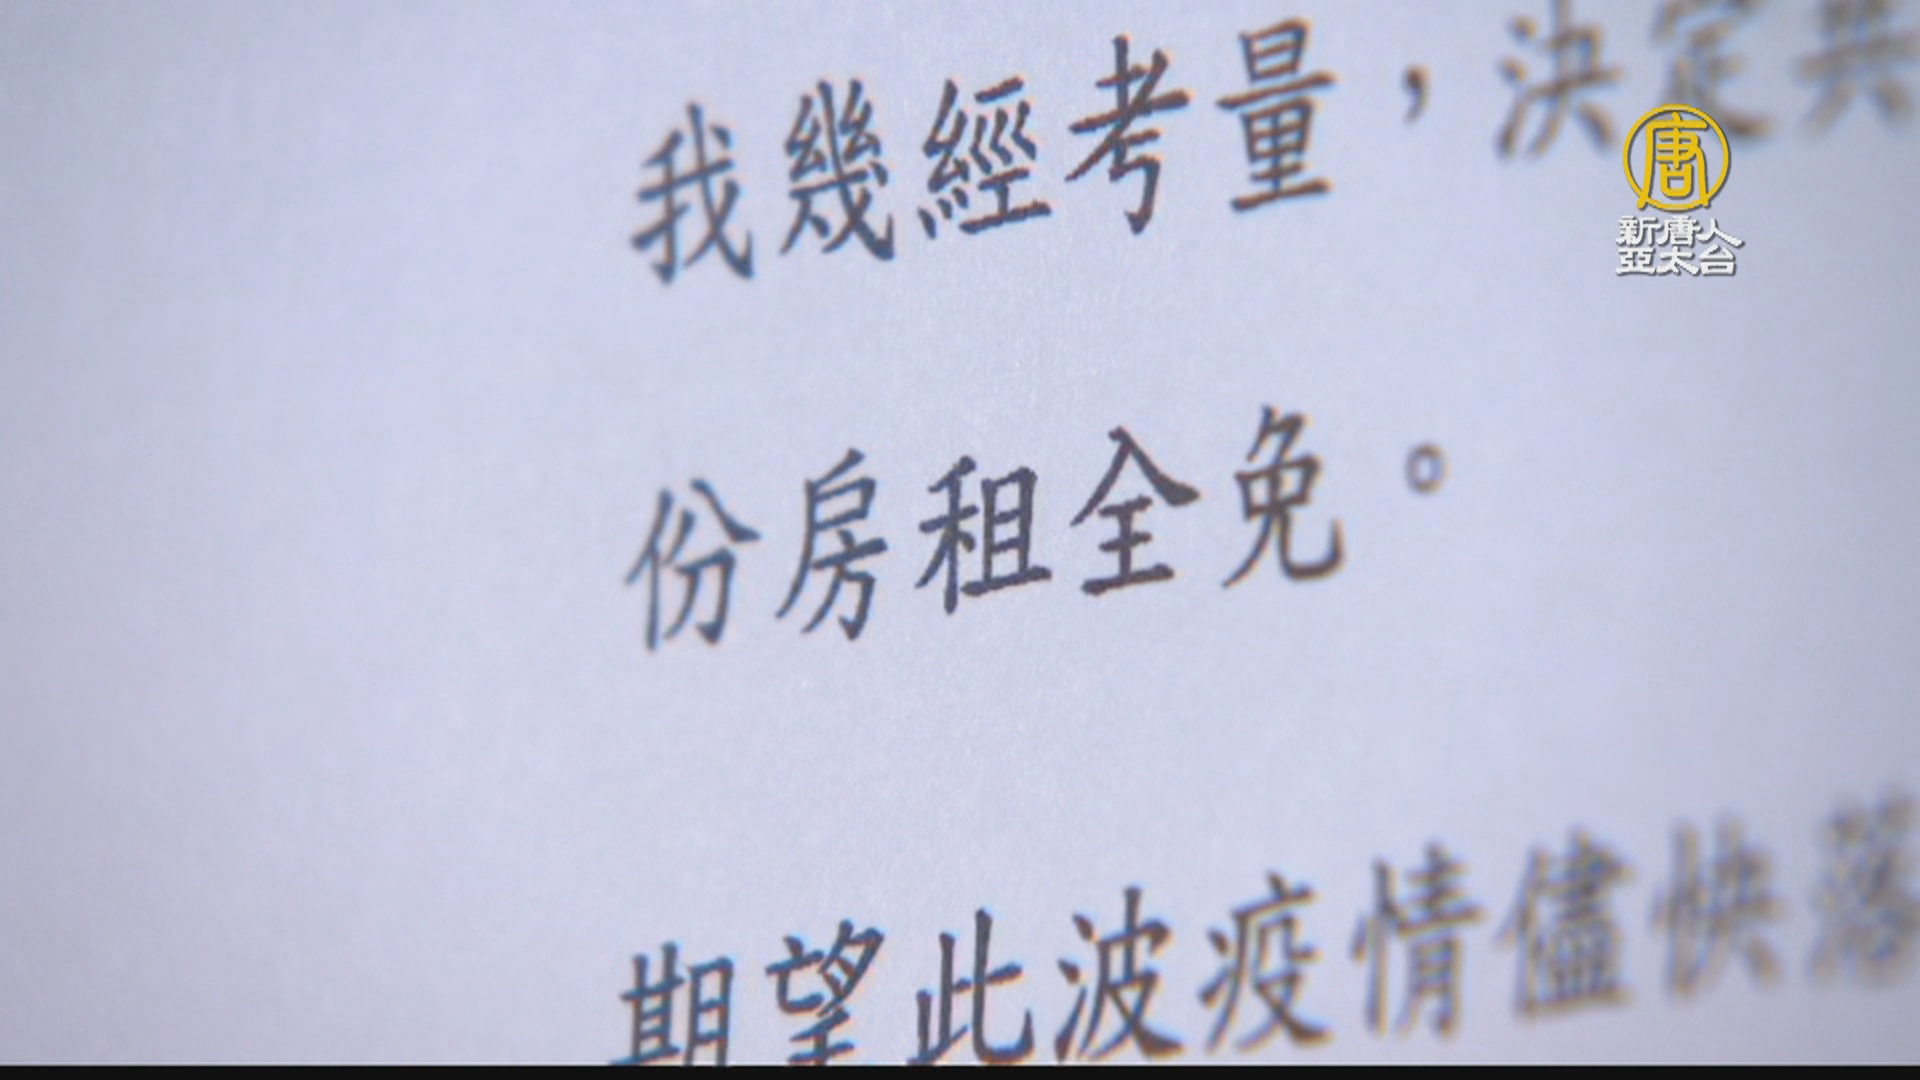 我幾經考量，決定共
份房租全免。
期望此波疫情儘快落
唐
新唐人
亞太台